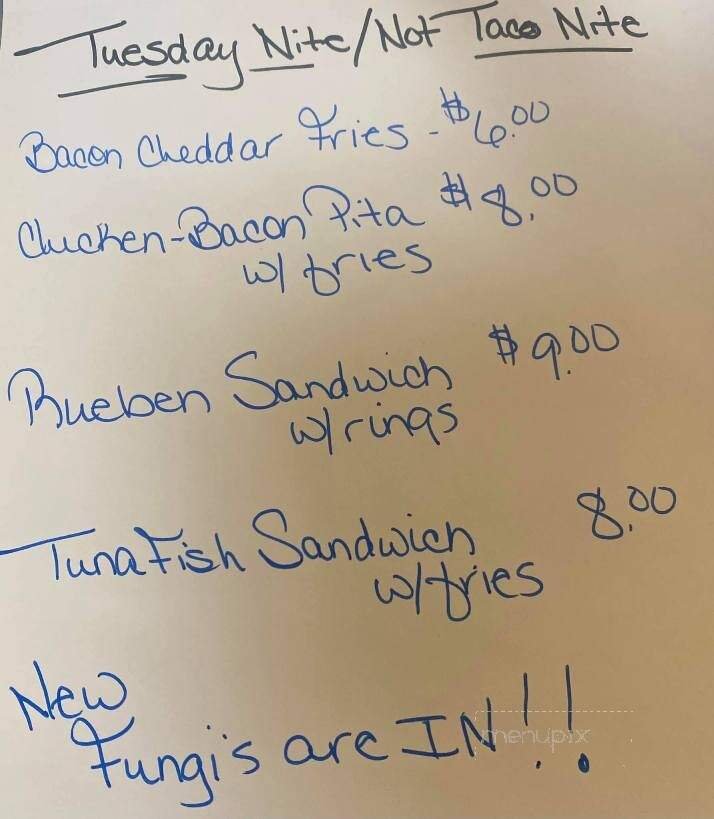 Tuesday Nite/Not Taco Nite
Bacon Cheddar Fries - $6.00
Chicken-Bacon Pita $8.00
w/ fries
Rueben Sandwich $9.00
w/ rings
Tuna Fish Sandwich 8.00
w/ fries
New
Fungi's are IN!!
menupix